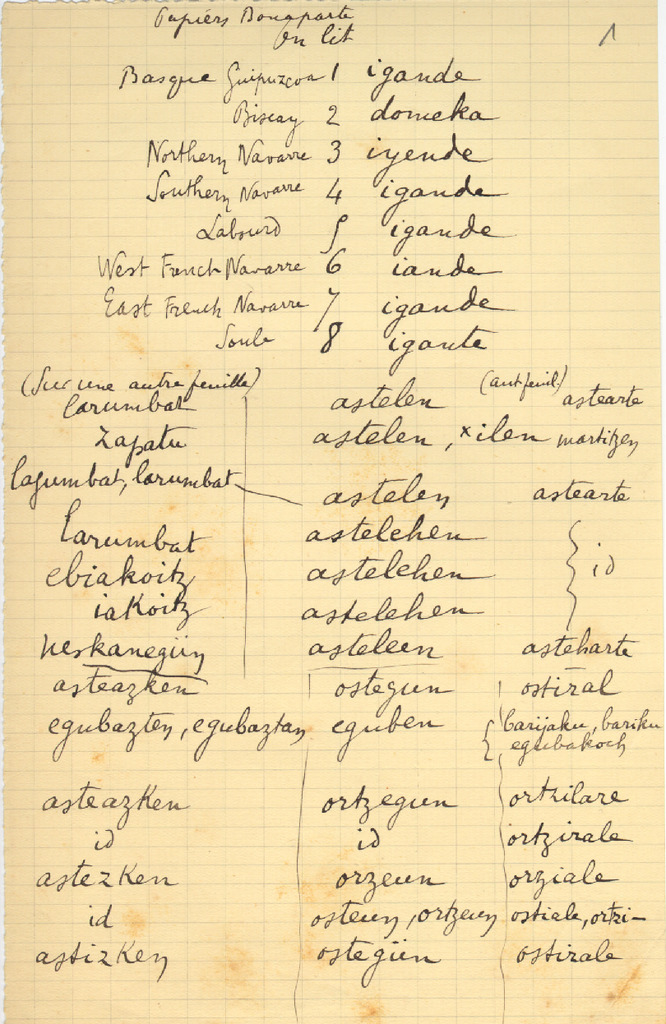 Papiers Bonaparte
On lit
1
Basque Guipuzcoa 1 igande
Biscay 2 domeka
Northern Navarre 3 iyende
Southern Navarre 4 igande
Labourd 5 igande
West French Navarre 6 iande
East French Navarre 7 igande
Soule 8 igante
(Sur une autre feuille) (aut feuil.)
larumbat astelen astearte
zapatu astelen, xilen martitzen
lagumbat, larumbat astelen astearte
larumbat astelehen
ebiakoitz astelehen } id
iakoitz astelehen
neskanegün asteleen asteharte
asteazken ostegun ostiral
egubazten, egubaztan eguben { barijaku, bariku
egubakoch
asteazken ortzegun ortzilare
id id ortzirale
astezken orzeun orziale
id osteun, ortzeun ostiale, ortzi-
astizken ostegün ostirale